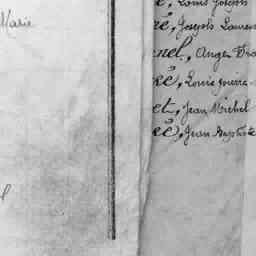 Marie
é, Louis Joseph
né, Joseph Lauren
nel, Ange Fra
né, Louis Pierre
et, Jean Michel
cé, Jean Baptiste